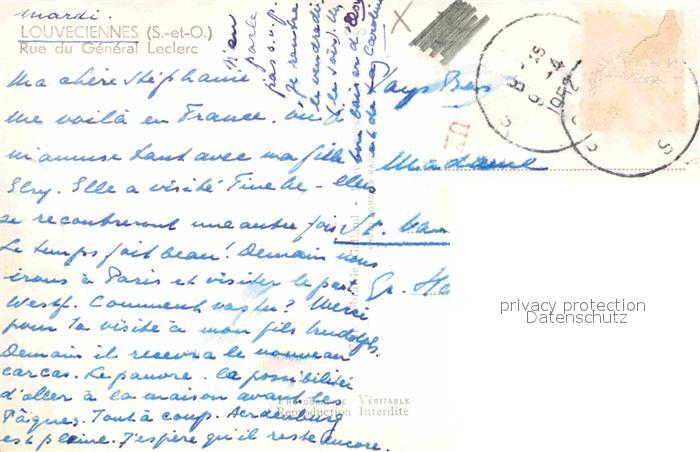 mardi.
LOUVECIENNES (S.-et-O.)
Rue du Général Leclerc
Ma chère Stéphanie
Me voilà en France. où je
m'amuse tant avec ma fille
Elly. Elle a visité Tineke - Elles
se recontreront une autre fois
Le temps fait beau! Demain nous
irons à Paris et visiter le parc
Comment vas tu? Merci
pour ta visite à mon fils
Demain il recevra le nouveau
carcas. Le pauvre. la possibilité
d'aller à la maison avant les
Pâques. Tout à coup. Aerdenburg
est pleine. J'espère qu'il reste encore.
N'en
parle
pas s.v.p.
je rentre
le vendredi
le soir. Un
bon baiser d'
Pays Bas
Madame
St.
Gr.
1952
PHOTOGRAPHIE VÉRITABLE
Reproduction Interdite
privacy protection
Datenschutz